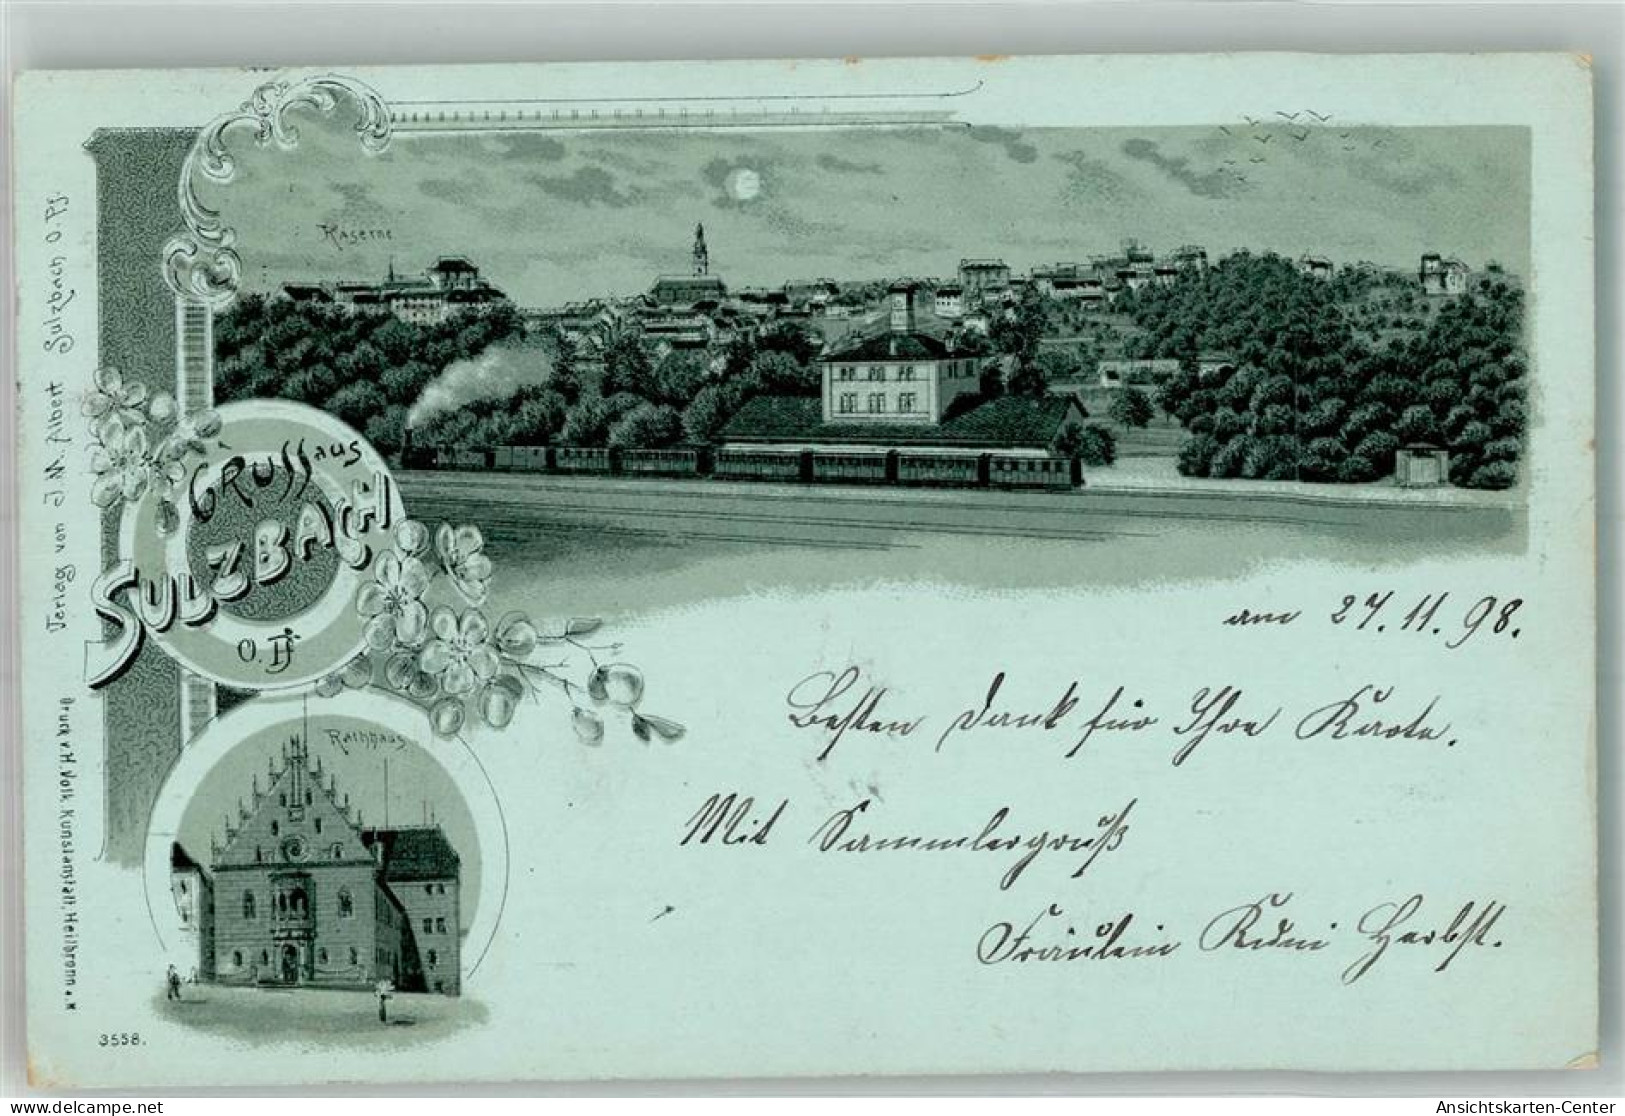 Kaserne
Gruss aus
Sulzbach
O. Pf.
Rathhaus
Verlag von J. M. Albert Sulzbach O. Pf.
Druck v. H. Volk, Kunstanstalt, Heilbronn a. N
3558.
am 27. 11. 98.
Besten Dank für Ihre Karte.
Mit Sammlergruß
Fräulein Kuni Herbst.
Ansichtskarten-Center
© 2024 akpool.de